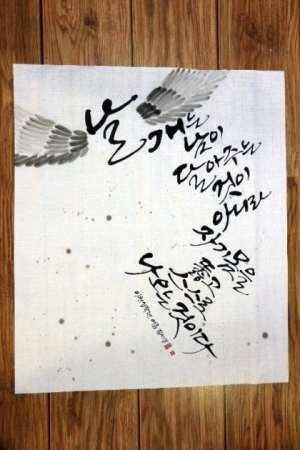 날개는
남이
달아주는
것이
아니라
자기 몸을
뚫고
스스로
나오는 것이다